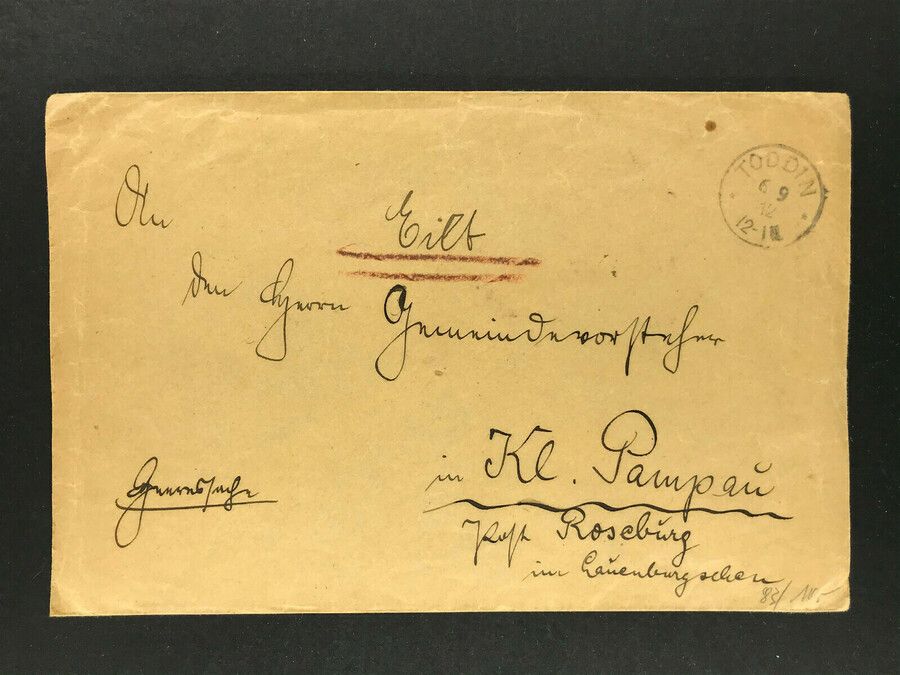 TODDIN
6 9
12
12-1N.
An
Eilt
den Herrn Gemeindevorsteher
in Kl. Pampau
Heeressache
Post Roseburg
im Lauenburgschen